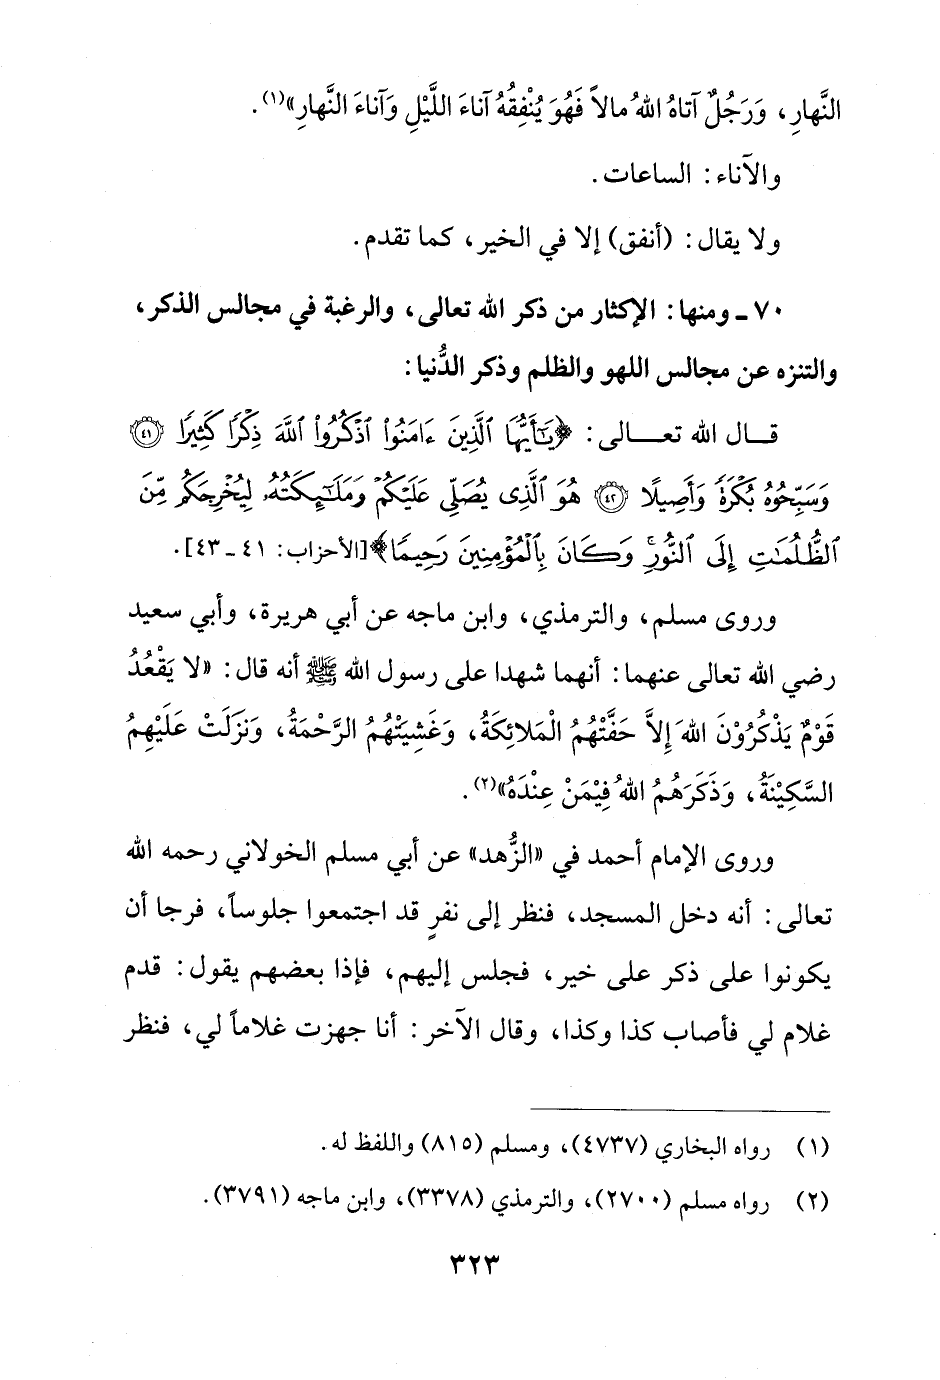 النَّهارِ، وَرَجُلٌ آتاهُ اللهُ مالاً فَهُوَ يُنْفِقُهُ آناءَ اللَّيْلِ وَآناءَ النَّهارِ»(١).
والآناء: الساعات.
ولا يقال: (أنفق) إلا في الخير، كما تقدم.
٧٠ـ ومنها: الإكثار من ذكر الله تعالى، والرغبة في مجالس الذكر،
والتنزه عن مجالس اللهو والظلم وذكر الدُّنيا:
قـال الله تعـــالى: ﴿يَٰٓأَيُّهَا ٱلَّذِينَ ءَامَنُوا۟ ٱذْكُرُوا۟ ٱللَّهَ ذِكْرًا كَثِيرًا ۝٤١
وَسَبِّحُوهُ بُكْرَةً وَأَصِيلًا ۝٤٢ هُوَ ٱلَّذِى يُصَلِّى عَلَيْكُمْ وَمَلَٰٓئِكَتُهُۥ لِيُخْرِجَكُم مِّنَ
ٱلظُّلُمَٰتِ إِلَى ٱلنُّورِ ۚ وَكَانَ بِٱلْمُؤْمِنِينَ رَحِيمًا﴾[الأحزاب: ٤١ ـ ٤٣].
وروى مسلم، والترمذي، وابن ماجه عن أبي هريرة، وأبي سعيد
رضي الله تعالى عنهما: أنهما شهدا على رسول الله ﷺ أنه قال: «لا يَقْعُدُ
قَوْمٌ يَذْكُرُوْنَ اللهَ إِلاَّ حَفَّتْهُمُ الْمَلائِكَةُ، وَغَشِيَتْهُمُ الرَّحْمَةُ، وَنَزَلَتْ عَلَيْهِمُ
السَّكِيْنَةُ، وَذَكَرَهُمُ اللهُ فِيْمَنْ عِنْدَهُ»(٢).
وروى الإمام أحمد في «الزُّهد» عن أبي مسلم الخولاني رحمه الله
تعالى: أنه دخل المسجد، فنظر إلى نفرٍ قد اجتمعوا جلوساً، فرجا أن
يكونوا على ذكر على خير، فجلس إليهم، فإذا بعضهم يقول: قدم
غلام لي فأصاب كذا وكذا، وقال الآخر: أنا جهزت غلاماً لي، فنظر
(١) رواه البخاري (٤٧٣٧)، ومسلم (٨١٥) واللفظ له.
(٢) رواه مسلم (٢٧٠٠)، والترمذي (٣٣٧٨)، وابن ماجه (٣٧٩١).
٣٢٣